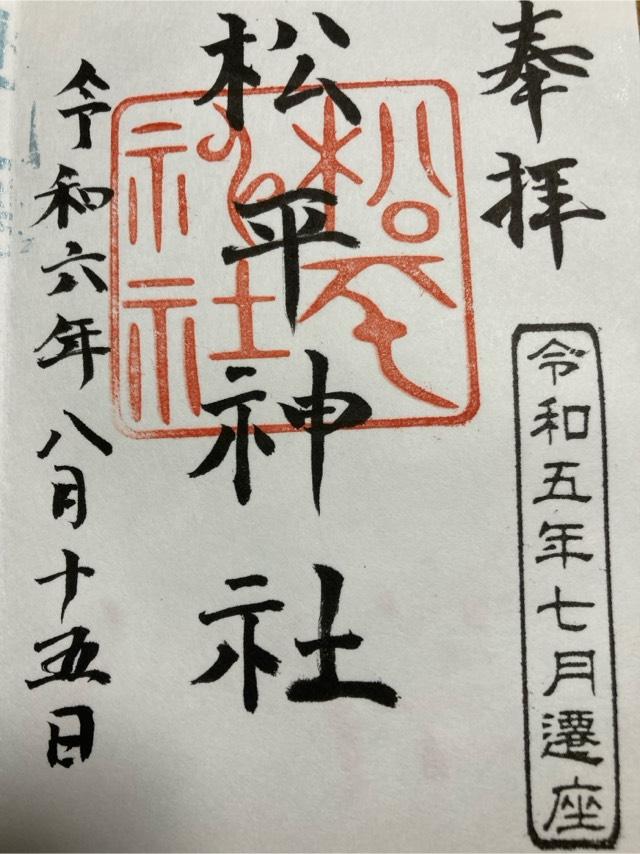 奉拝
令和五年七月遷座
松平神社
松平
神社
令和六年八月十五日